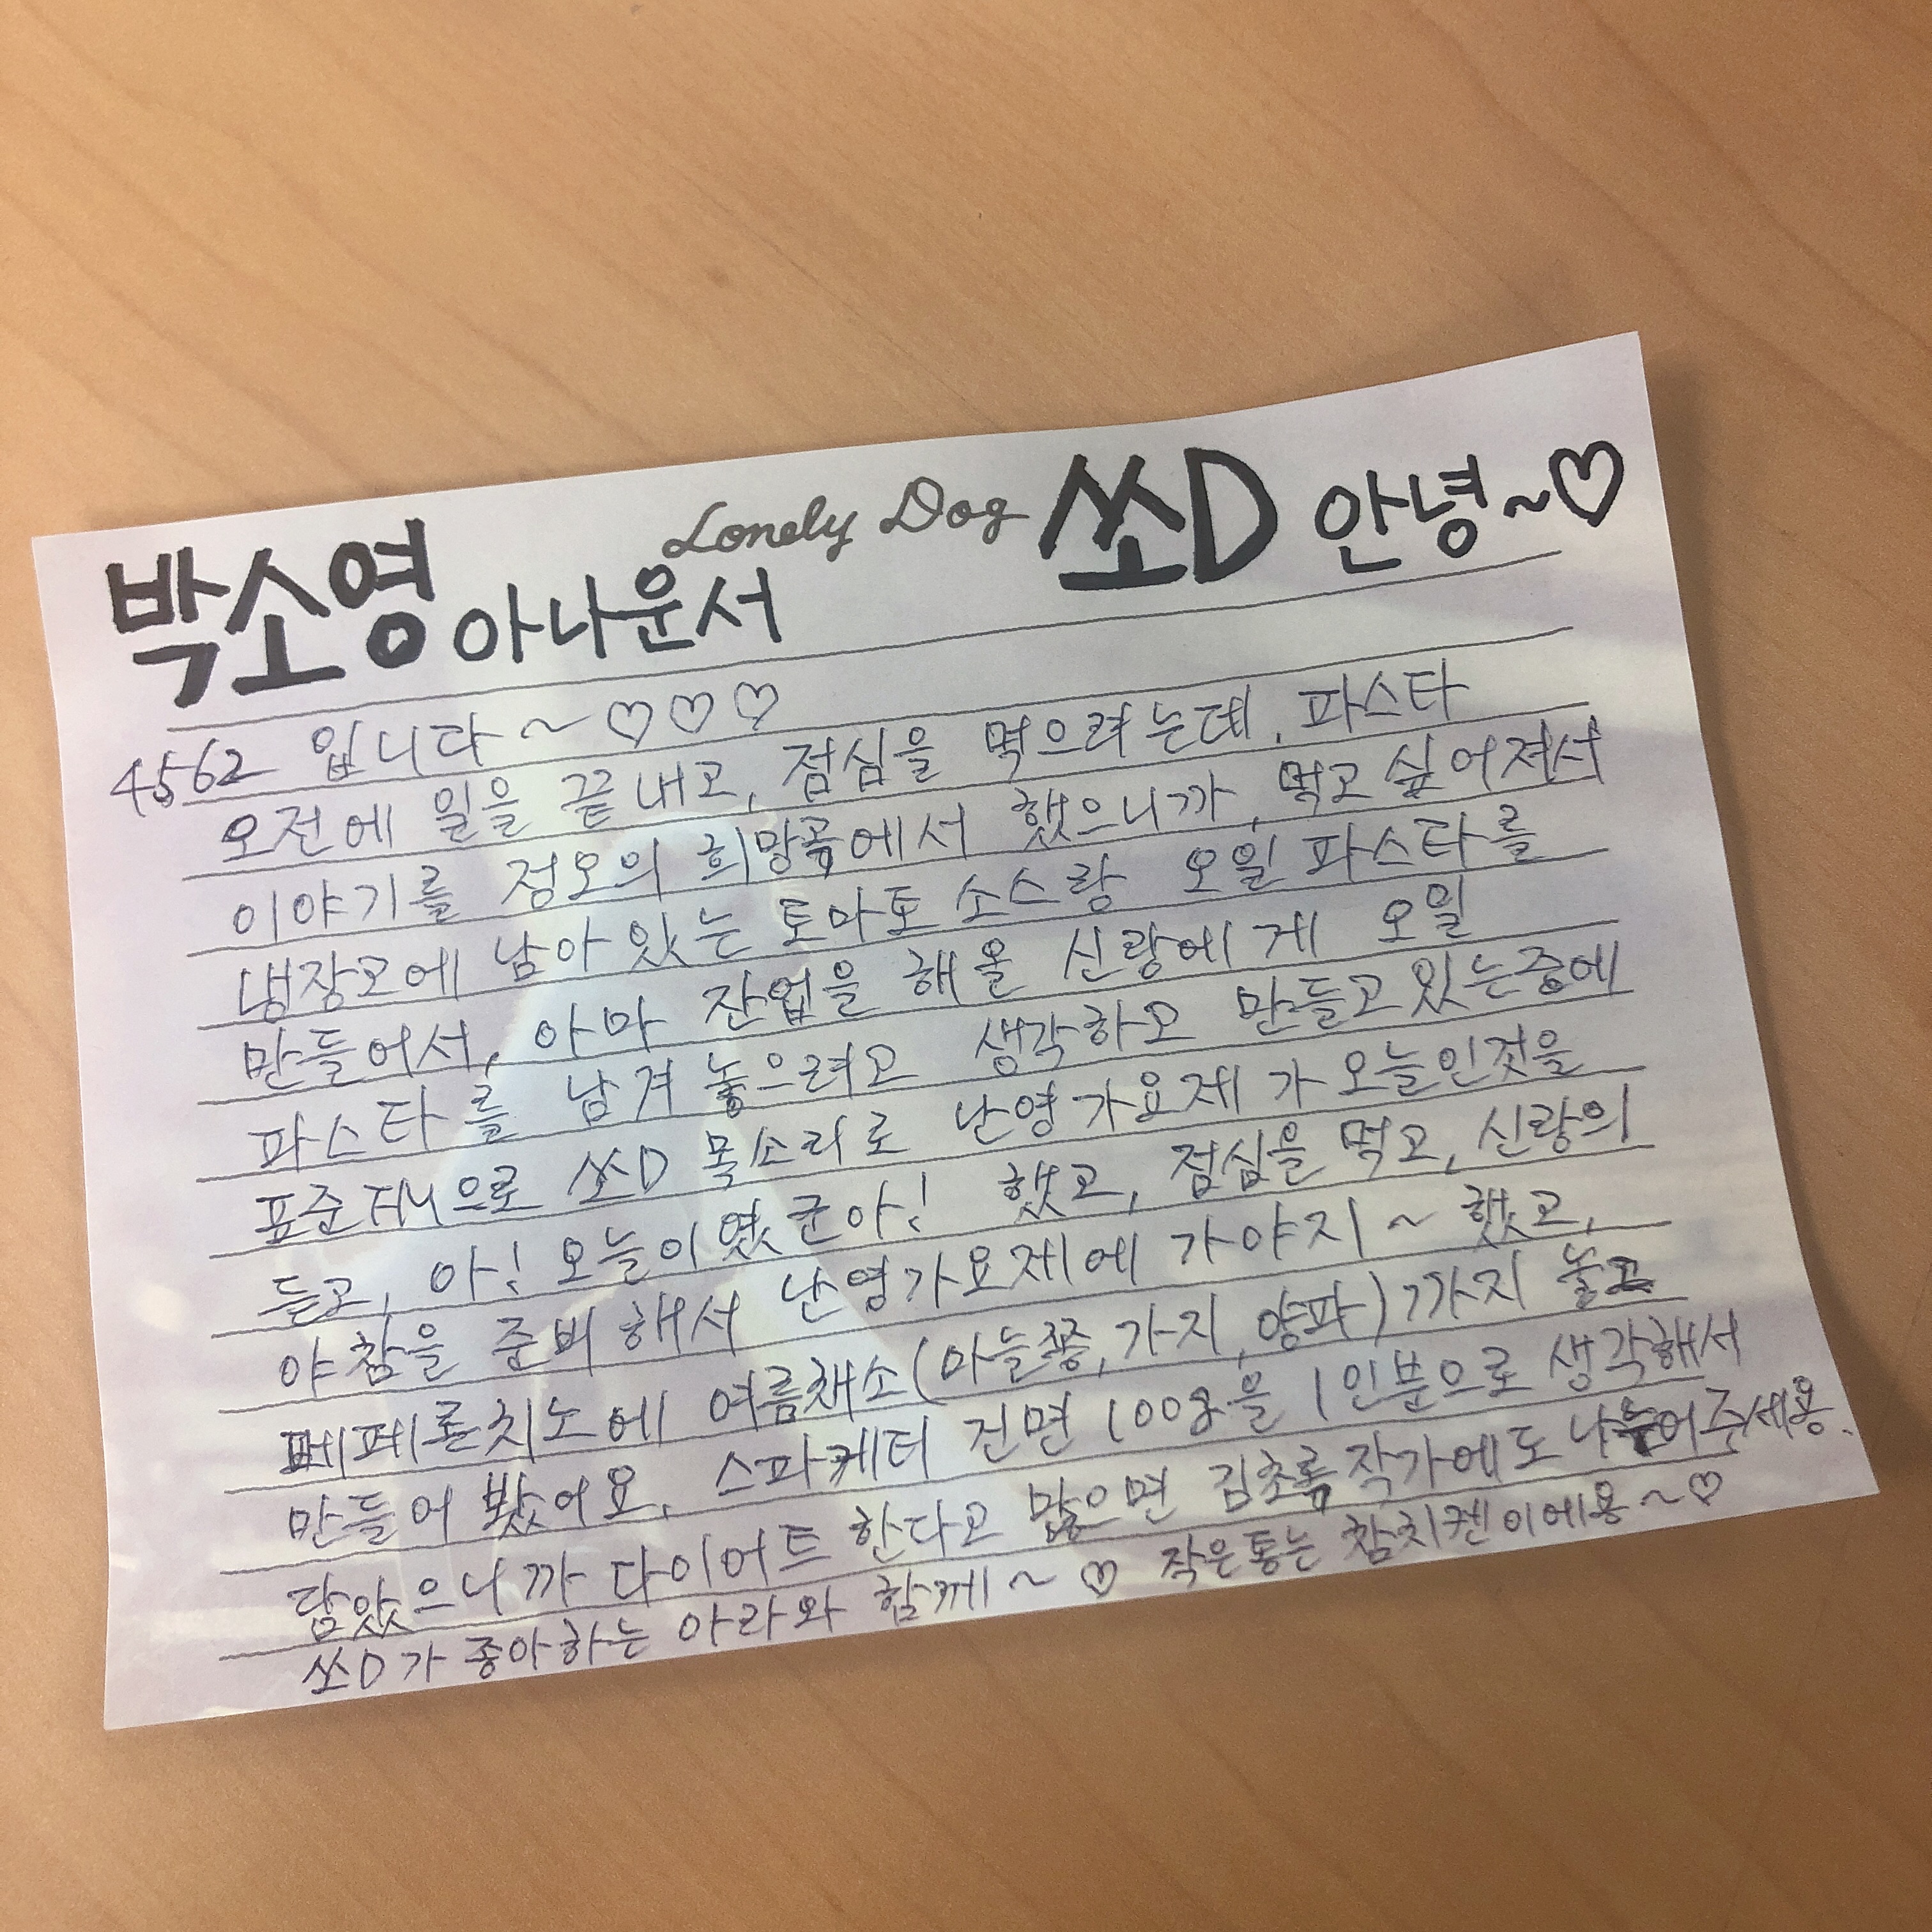 Lonely Dog 쏘D 안녕~♡
박소영 아나운서
4562 입니다~♡♡♡
오전에 일을 끝내고, 점심을 먹으려는데, 파스타
이야기를 정오의 희망곡에서 했으니까, 먹고 싶어져서
냉장고에 남아 있는 토마토 소스랑 오일 파스타를
만들어서, 아마 잔업을 해올 신랑에게 오일
파스타를 남겨 놓으려고 생각하고 만들고 있는중에
표준FM으로 쏘D 목소리로 난영가요제가 오늘인것을
듣고, 아! 오늘이였군아! 했고, 점심을 먹고, 신랑의
야참을 준비해서 난영가요제에 가야지~ 했고,
페페론치노에 여름채소(마늘쫑, 가지, 양파)까지 놓고
만들어 봤어요. 스파케티 건면 100g을 1인분으로 생각해서
담았으니까 다이어트 한다고 많으면 김초록작가에도 나눠주세용.
쏘D가 좋아하는 아라와 함께~♡ 작은통는 참치켄이에용~♡